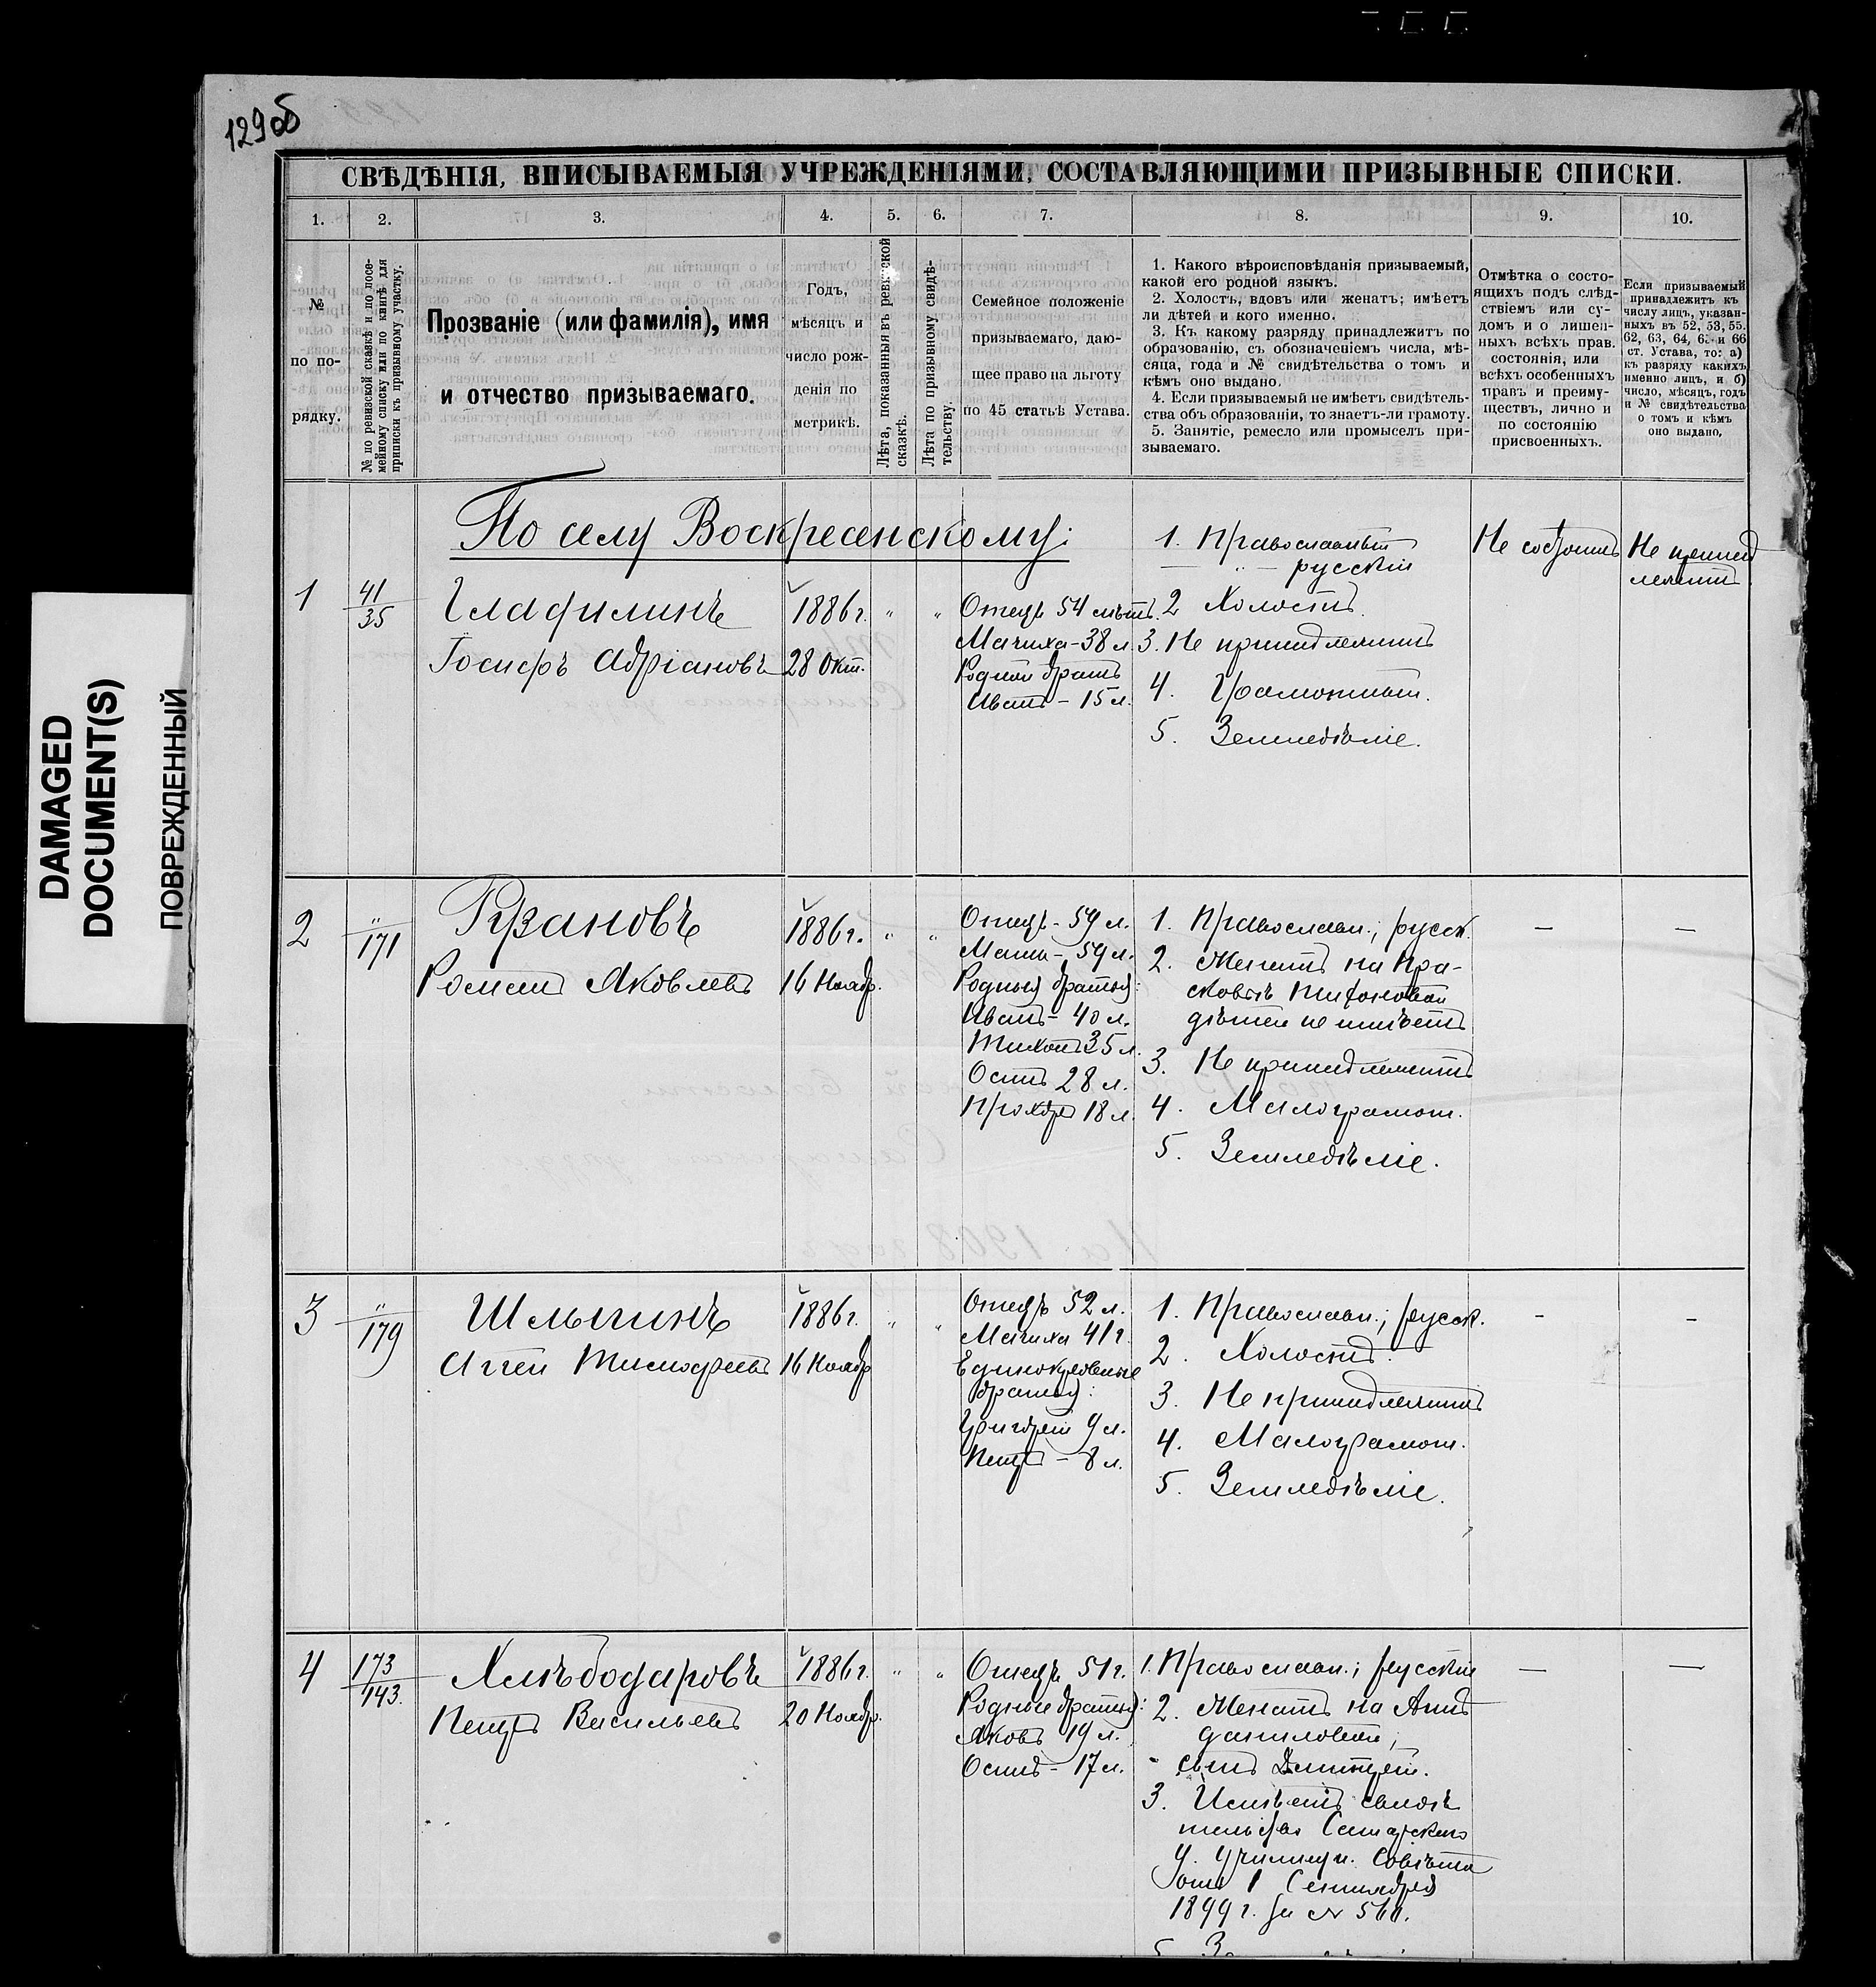 129об
СВѢДѢНІЯ, ВПИСЫВАЕМЫЯ УЧРЕЖДЕНІЯМИ, СОСТАВЛЯЮЩИМИ ПРИЗЫВНЫЕ СПИСКИ.
1. 2. 3. 4. 5. 6. 7. 8. 9. 10.
№
по по-
рядку.
№ по ревизской сказкѣ и по посе-
мейному списку или по книгѣ для
приписки къ призывному участку.
Прозваніе (или фамилія), имя
и отчество призываемаго.
Годъ,
мѣсяцъ и
число рож-
денія по
метрикѣ.
Лѣта, показанныя въ ревизской
сказкѣ.
Лѣта по призывному свидѣ-
тельству.
Семейное положеніе
призываемаго, даю-
щее право на льготу
по 45 статьѣ Устава.
1. Какого вѣроисповѣданія призываемый,
какой его родной языкъ.
2. Холостъ, вдовъ или женатъ; имѣетъ
ли дѣтей и кого именно.
3. Къ какому разряду принадлежитъ по
образованію, съ обозначеніемъ числа, мѣ-
сяца, года и № свидѣтельства о томъ и
кѣмъ оно выдано.
4. Если призываемый не имѣетъ свидѣтель-
ства объ образованіи, то знаетъ-ли грамоту.
5. Занятіе, ремесло или промыселъ при-
зываемаго.
Отмѣтка о состо-
ящихъ подъ слѣд-
ствіемъ или су-
домъ и о лишен-
ныхъ всѣхъ прав.
состоянія, или
всѣхъ особенныхъ
правъ и преиму-
ществъ, лично и
по состоянію
присвоенныхъ.
Если призываемый
принадлежитъ къ
числу лицъ, указан-
ныхъ въ 52, 53, 55.
62, 63, 64, 65 и 66
ст. Устава, то: а)
къ разряду какихъ
именно лицъ, и б)
число, мѣсяцъ, годъ
и № свидѣтельства
о томъ и кѣмъ
оно выдано.
По селу Воскресенскому:
1
41
35
Глафилинъ
Іосифъ Адріановъ
1886 г.
28 Окт.
" "
Отецъ 54 лѣтъ.
Мачиха - 38 л.
Родной братъ
Иванъ - 15 л.
1. Православный
— " — русскій
2 Холостъ.
3. Не принадлежитъ
4. Грамотный.
5. Земледѣліе.
Не состоитъ
Не принад
лежитъ
2
"
171
Рузановъ
Романъ Яковлевъ
1886 г.
16 Ноябр.
" "
Отецъ - 59 л.
Мать - 59 л.
Родные братья:
Иванъ - 40 л.
Тихонъ 35 л.
Осипъ 28 л.
Прохоръ 18 л.
1. Православн.; русск.
2. Женатъ на Пра-
сковьѣ
дѣтей не имѣетъ
3. Не принадлежитъ
4. Малограмот.
5. Земледѣліе.
— —
3
"
179
Шлыгинъ
Аггей Тимофеевъ
1886 г.
16 Ноябр
" "
Отецъ 52 л.
Мачиха 41 г.
Единокровные
братья:
Григорій 9 л.
Петръ - 8 л.
1. Православн.; русск.
2. Холостъ.
3. Не принадлежитъ
4. Малограмот.
5. Земледѣліе.
- -
4
173
143.
Хлѣбодаровъ
Петръ Васильевъ
1886 г.
20 Ноябр.
" "
Отецъ 51 г.
Родные братья:
Яковъ 19 л.
Осипъ - 17 л.
1. Православн.; русскій
2. Женатъ на Аннѣ
Даниловой;
сынъ Дмитрій.
3. Имѣетъ свидѣ
тельство Самарскаго
У. Училищн. Совѣта
отъ 1 Сентября
1899 г. за №
— —
DAMAGED
DOCUMENT(S)
ПОВРЕЖДЕННЫЙ